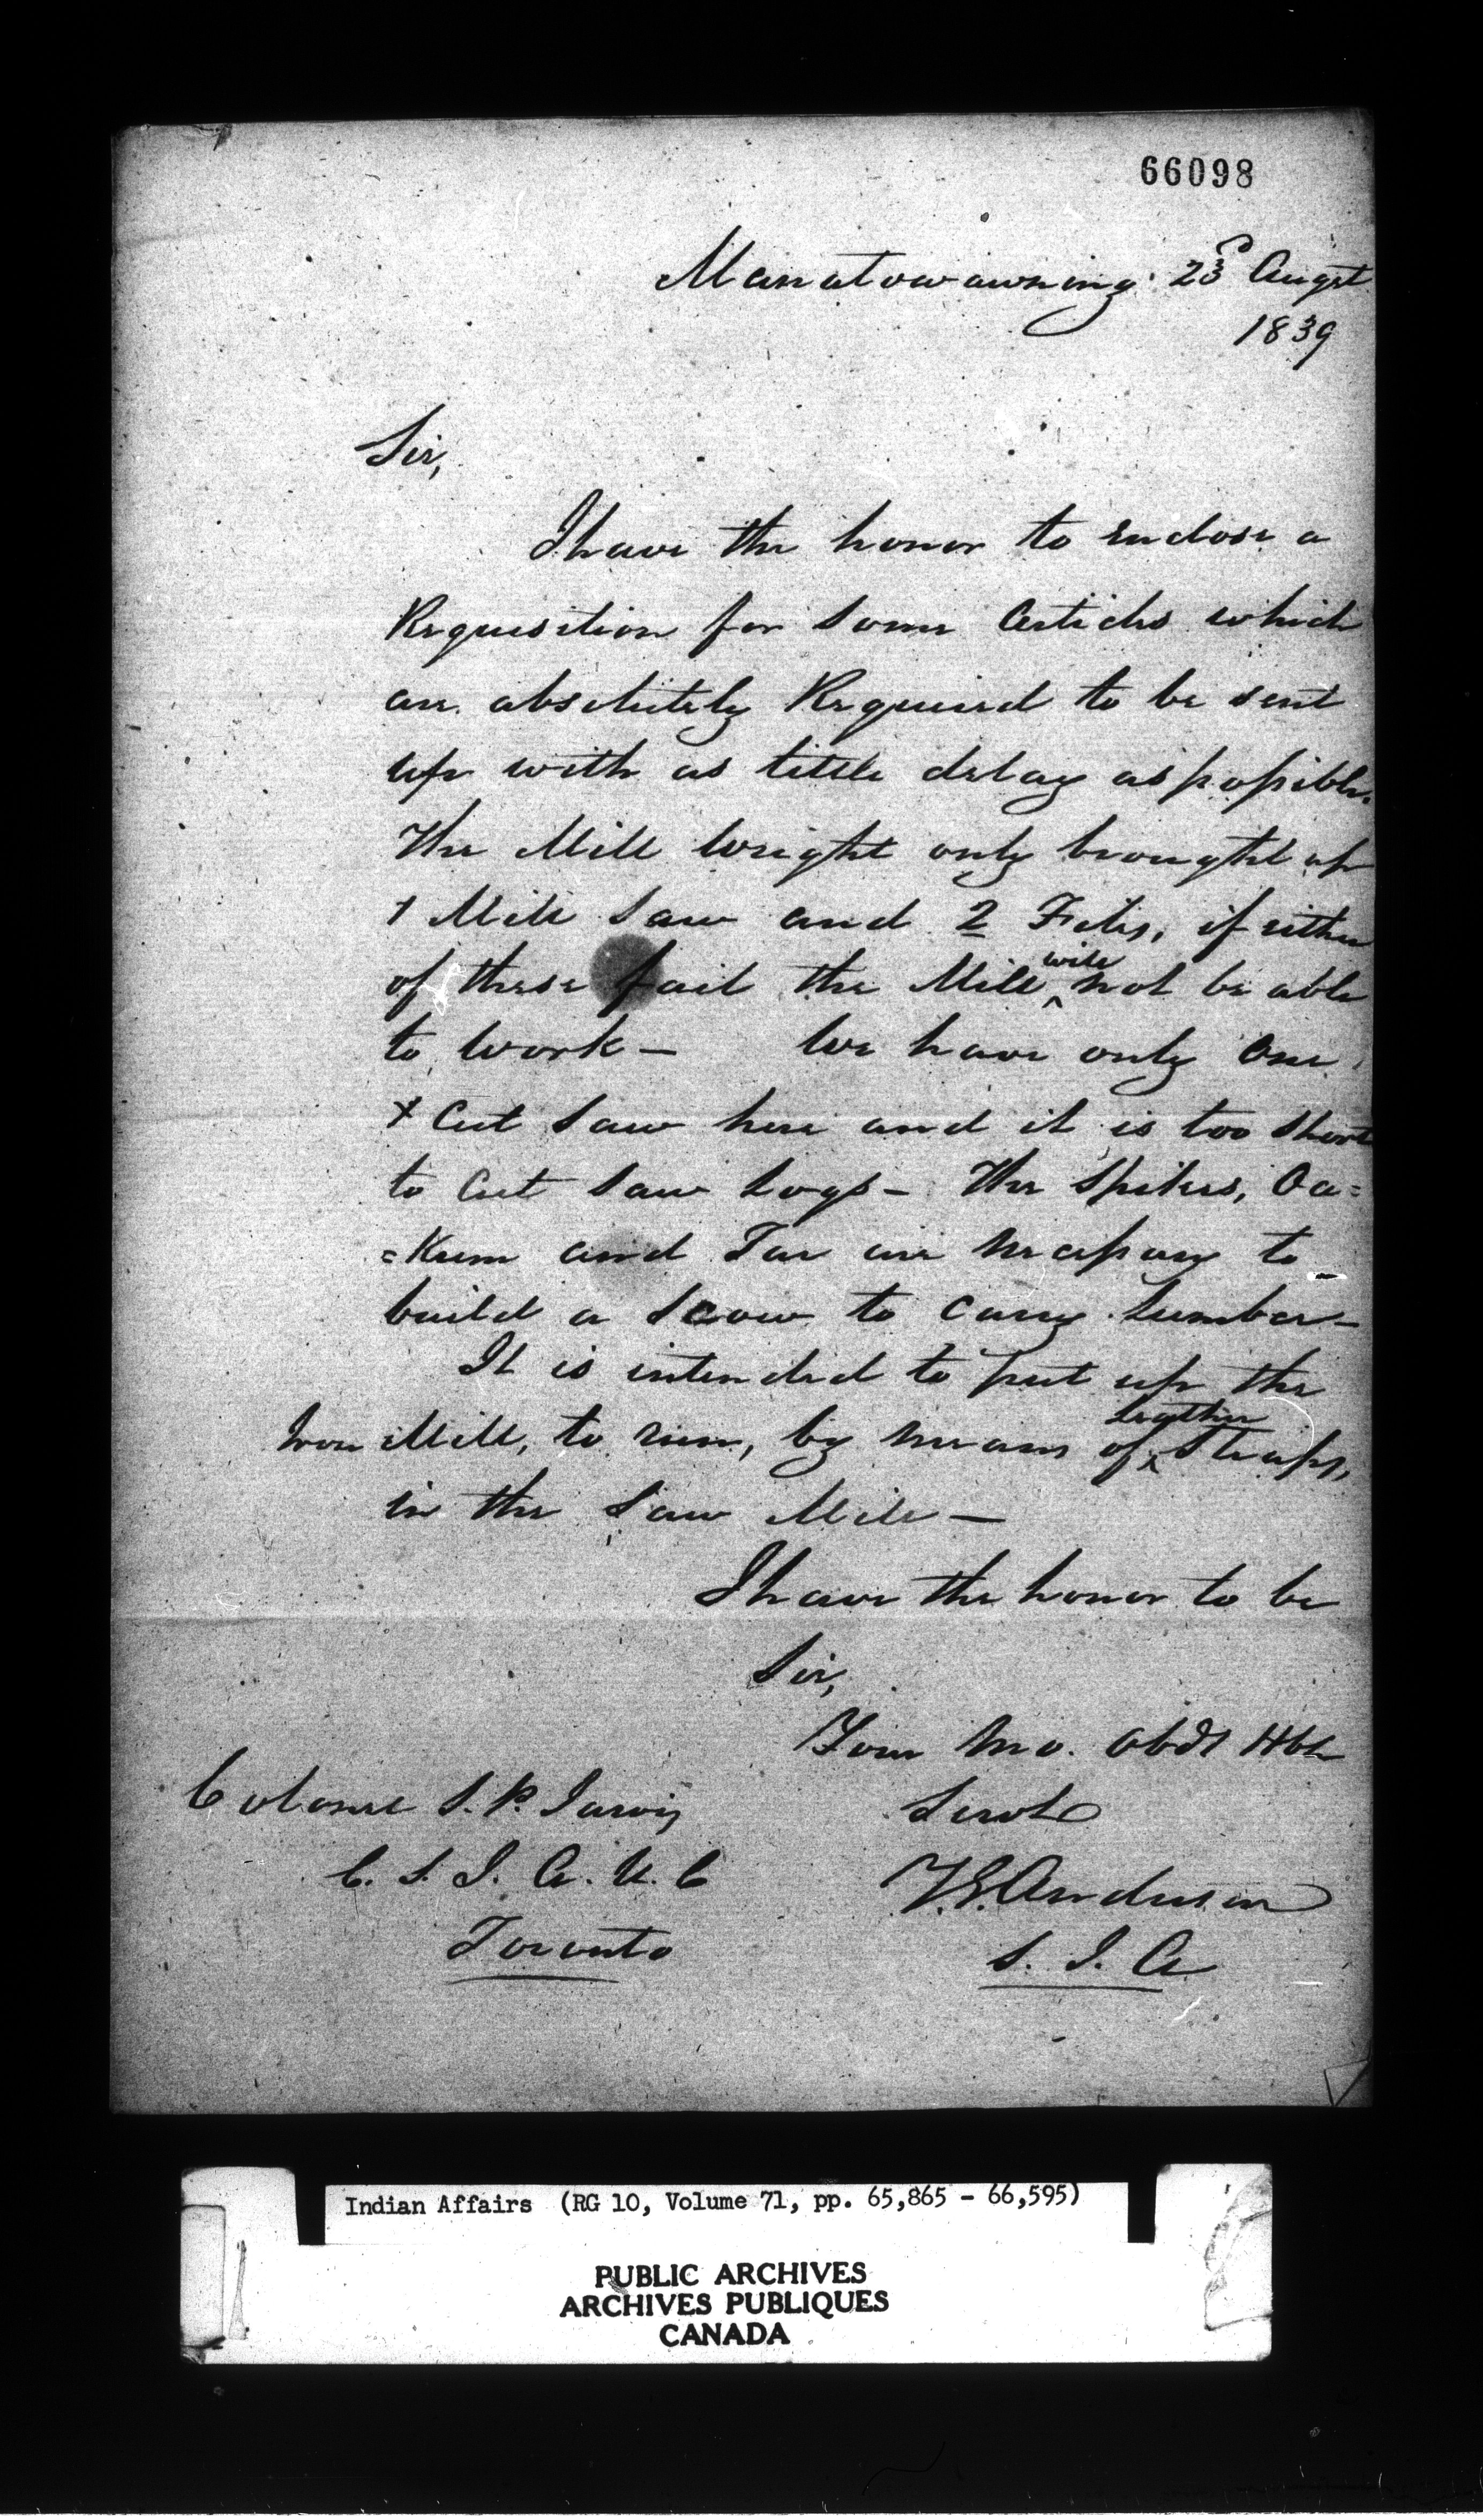 66098
Manatowawning 23d Augst
1839
Sir,
I have the honor to enclose a
Requisition for some Articles which
are absolutely Required to be sent
up with as little delay as possible.
The Mill Wright only brought up
1 Mill Saw and 2 Files, if either
of these fail the Mill will not be able
to work — We have only one
+ Cut Saw here and it is too short
to Cut Saw Logs — The Spikes, Oa=
=Kum and Tar are necessary to
build a Scow to carry Lumber —
It is intended to put up the
Iron Mill, to run, by means of Leather Straps,
in the Saw Mill —
I have the honor to be
Sir,
Your Mo. Obdt Hble
Servt
Colonel S. P. Jarvis
T.G. Anderson
C. S. I. A. U. C
S. I. A
Toronto
Indian Affairs (RG 10, Volume 71, pp. 65,865 - 66,595)
PUBLIC ARCHIVES
ARCHIVES PUBLIQUES
CANADA